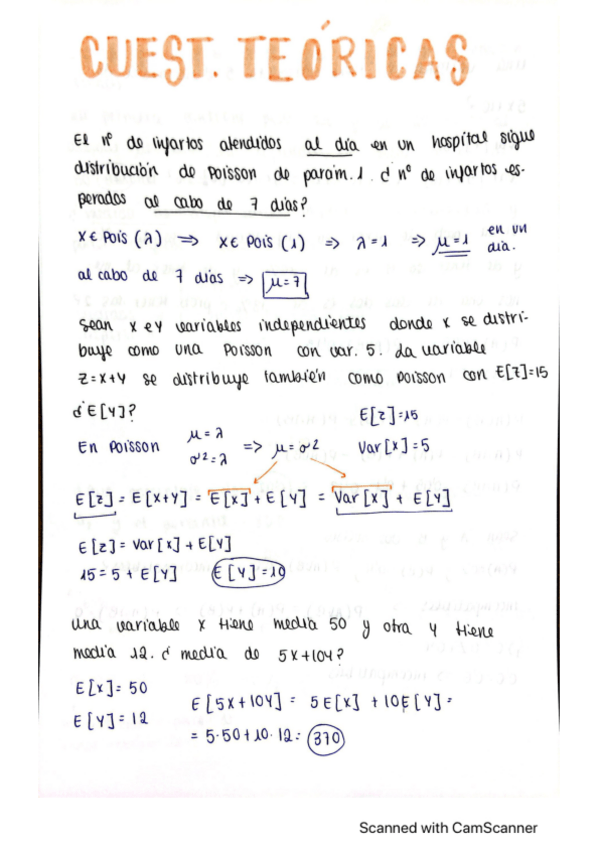 CUEST. TEÓRICAS
El nº de infartos atendidos al día en un hospital sigue
distribución de Poisson de parám. 1. ¿ nº de infartos es-
perados al cabo de 7 días?
X ∈ Pois (λ) ⇒ X ∈ Pois (1) ⇒ λ = 1 ⇒ μ = 1 en un
día.
al cabo de 7 días ⇒ μ = 7
Sean X e Y variables independientes donde X se distri-
buye como una Poisson con var. 5. La variable
Z = X+Y se distribuye también como Poisson con E[Z]=15
¿E[Y]?
E[Z]=15
En Poisson μ = λ ⇒ μ = σ² Var[X]=5
σ² = λ
E[Z] = E[X+Y] = E[X] + E[Y] = Var[X] + E[Y]
E[Z] = Var[X] + E[Y]
15 = 5 + E[Y] E[Y]=10
Una variable X tiene media 50 y otra Y tiene
media 12. ¿ media de 5X+10Y?
E[X]= 50
E[Y]= 12
E[5X+10Y] = 5E[X] + 10E[Y] =
= 5·50+10·12 = 370
Scanned with CamScanner